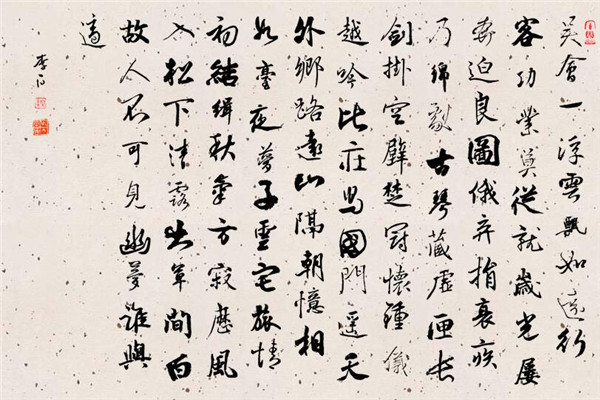 吳會一浮雲飄如遠行
客功業莫從就歲光屢
奔迫良圖俄棄捐衰疾
乃綿劇古琴藏虛匣長
劍掛空壁楚冠懷鍾儀
越吟比莊舄國門遙天
外鄉路遠山隔朝憶相
如臺夜夢子雲宅旅情
初結緝秋氣方寂歷風
入松下清露出草間白
故人不可見幽夢誰與
適
李白